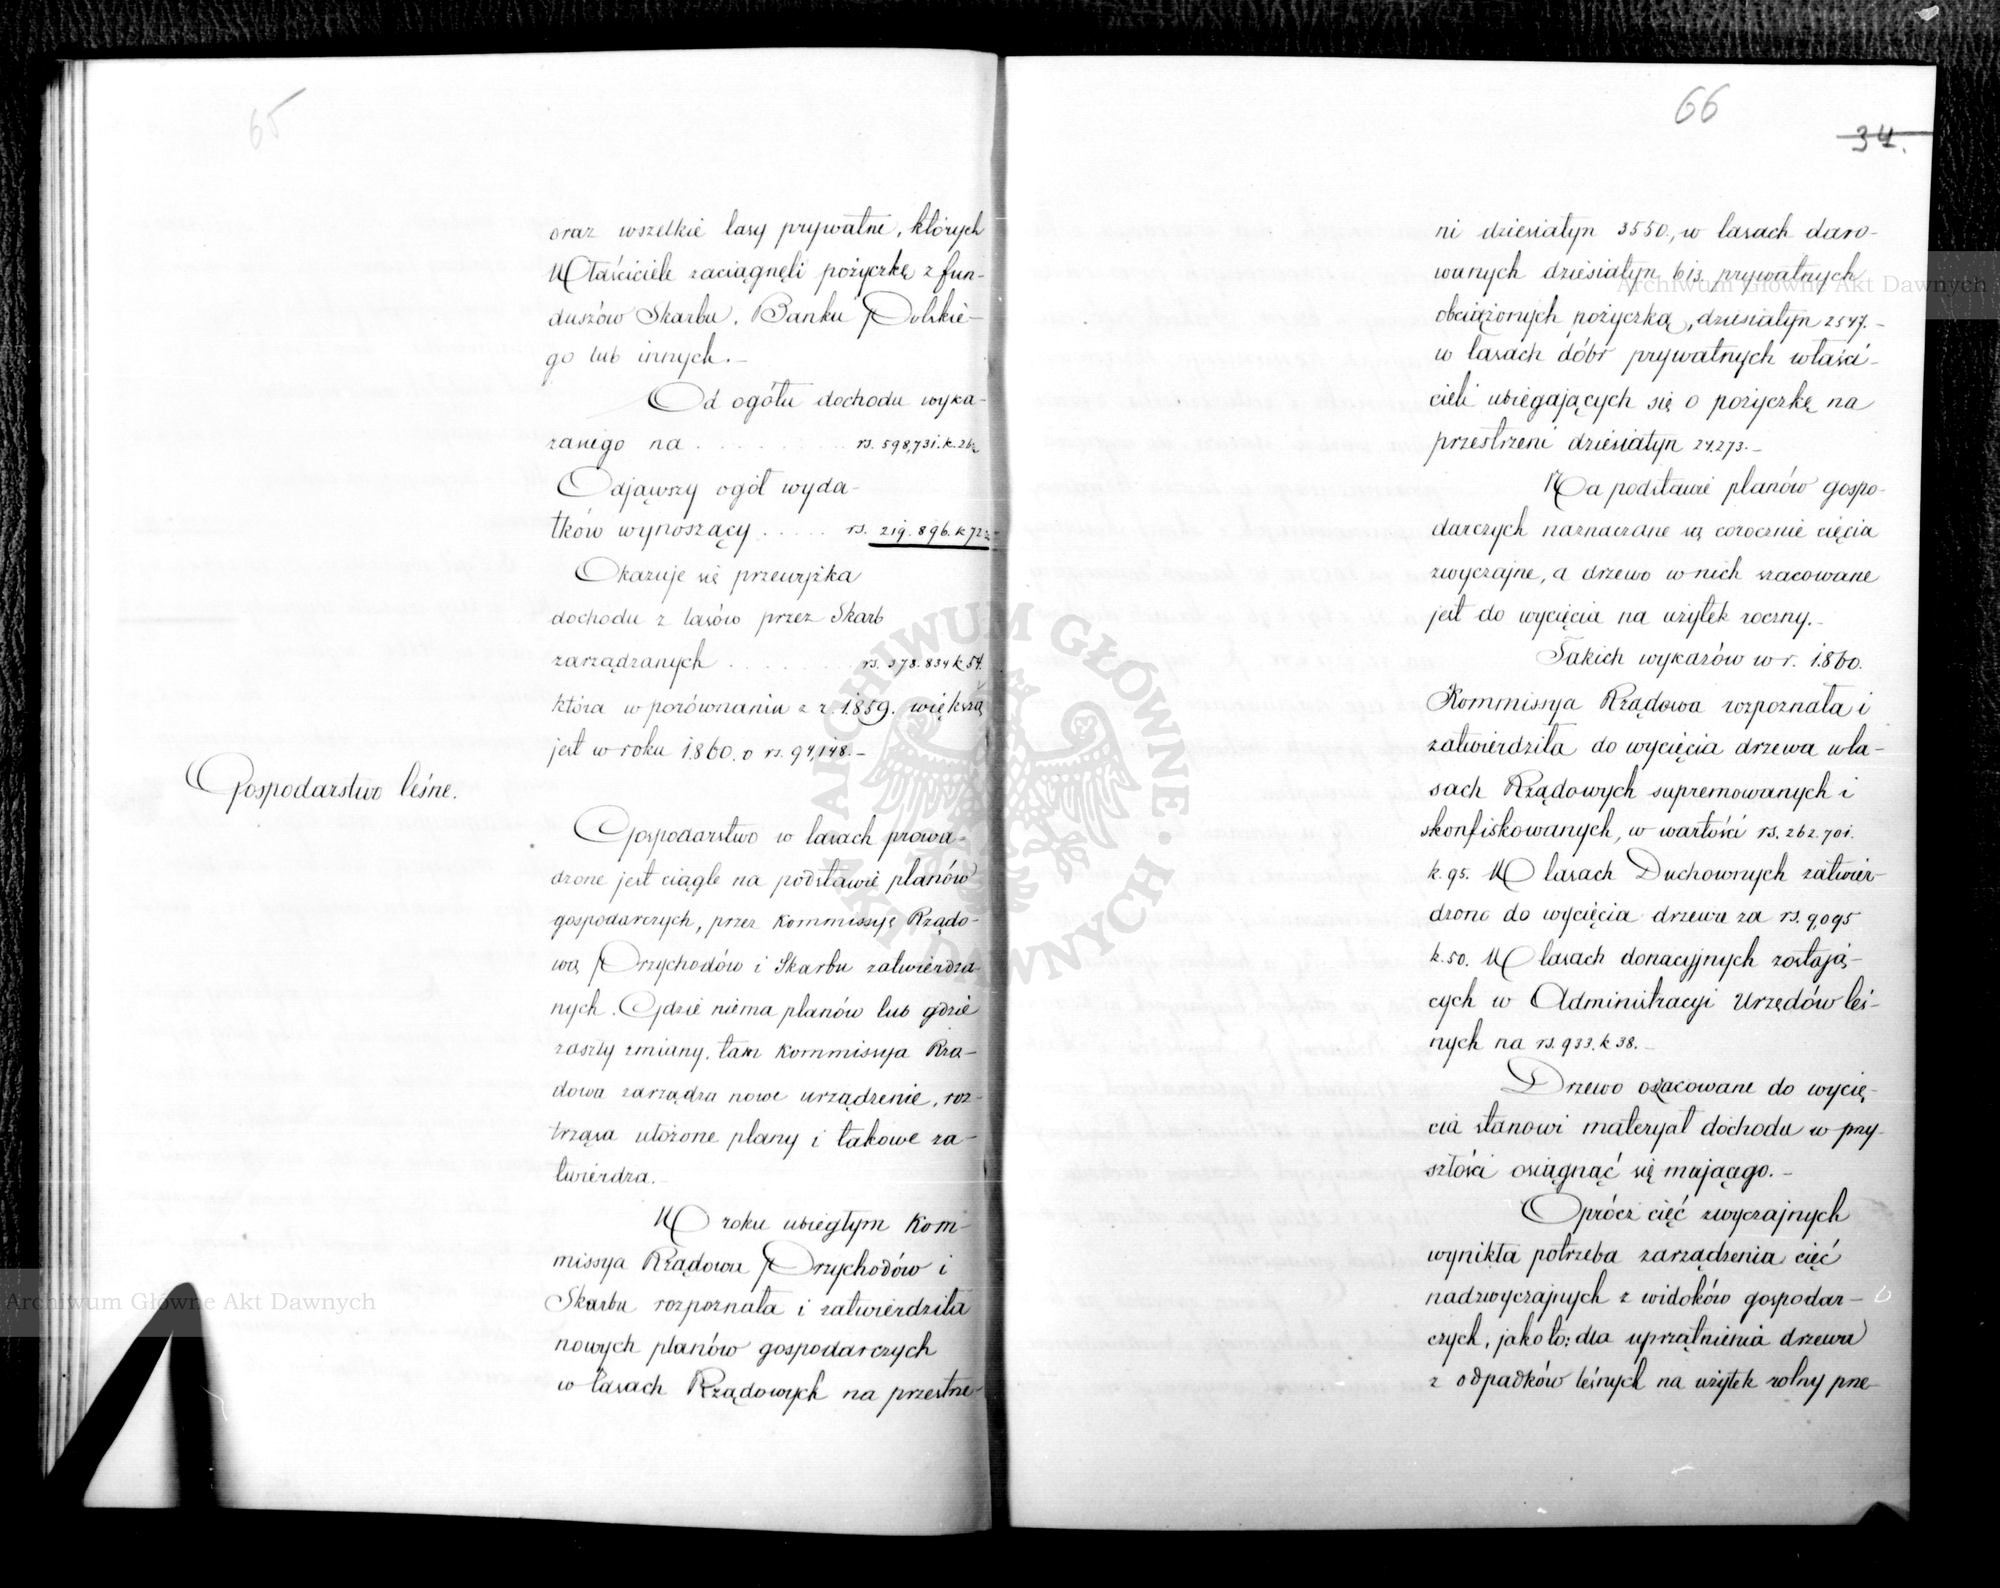 65
oraz wszelkie lasy prywatne, których
Właściciele zaciągnęli pożyczkę z fun-
duszów Skarbu, Banku Polskie-
go lub innych.–
Od ogółu dochodu wyka-
zanego na . . . . . . . . rs. 598,731. k. 26
Odjąwszy ogół wyda-
tków wynoszący . . . . . rs. 219.896. k 72
Okazuje się przewyżka
dochodu z lasów przez Skarb
zarządzanych . . . . . . . rs. 378.834 k 54
która w porównaniu z r. 1859. większą
jest w roku 1860. o rs. 94,148.–
Gospodarstwo leśne.
Gospodarstwo w lasach prowa-
dzone jest ciągle na podstawie planów
gospodarczych, przez Kommissyę Rządo-
wą Przychodów i Skarbu zatwierdza-
nych. Gdzie niema planów lub gdzie
zaszły zmiany, tam Kommissya Rzą-
dowa zarządza nowe urządzenie, roz-
trząsa ułożone plany i takowe za-
twierdza.–
W roku ubiegłym Kom-
missya Rządowa Przychodów i
Skarbu rozpoznała i zatwierdziła
nowych planów gospodarczych
w lasach Rządowych na przestrze-
66
34.
ni dziesiatyn 3550, w lasach daro-
wanych dziesiatyn 613, prywatnych
obciążonych pożyczką, dziesiatyn 2547.–
w lasach dóbr prywatnych właści-
cieli ubiegających się o pożyczkę na
przestrzeni dziesiatyn 24.273.–
Na podstawie planów gospo-
darczych naznaczane są corocznie cięcia
zwyczajne, a drzewo w nich szacowane
jest do wycięcia na użytek roczny.–
Takich wykazów w r. 1860.
Kommissya Rządowa rozpoznała i
zatwierdziła do wycięcia drzewa w la-
sach Rządowych supremowanych i
skonfiskowanych, w wartości rs. 262.701.
k. 95. W lasach Duchownych zatwier-
dzono do wycięcia drzewa za rs. 9,095
k. 50. W lasach donacyjnych zostają-
cych w Administracyi Urzędów leś-
nych na rs. 933. k 38.–
Drzewo oszacowane do wycię-
cia stanowi materyał dochodu w przy-
szłości osiągnąć się mającego.–
Oprócz cięć zwyczajnych
wynikła potrzeba zarządzenia cięć
nadzwyczajnych z widoków gospodar-
czych, jako to: dla uprzątnienia drzewa
z odpadków leśnych na użytek rolny prze-
Archiwum Główne Akt Dawnych
Archiwum Główne Akt Dawnych
ARCHIWUM GŁÓWNE AKT DAWNYCH